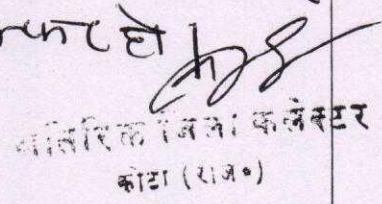 हो
अतिरिक्त जिला कलेक्टर
कोटा (राज०)